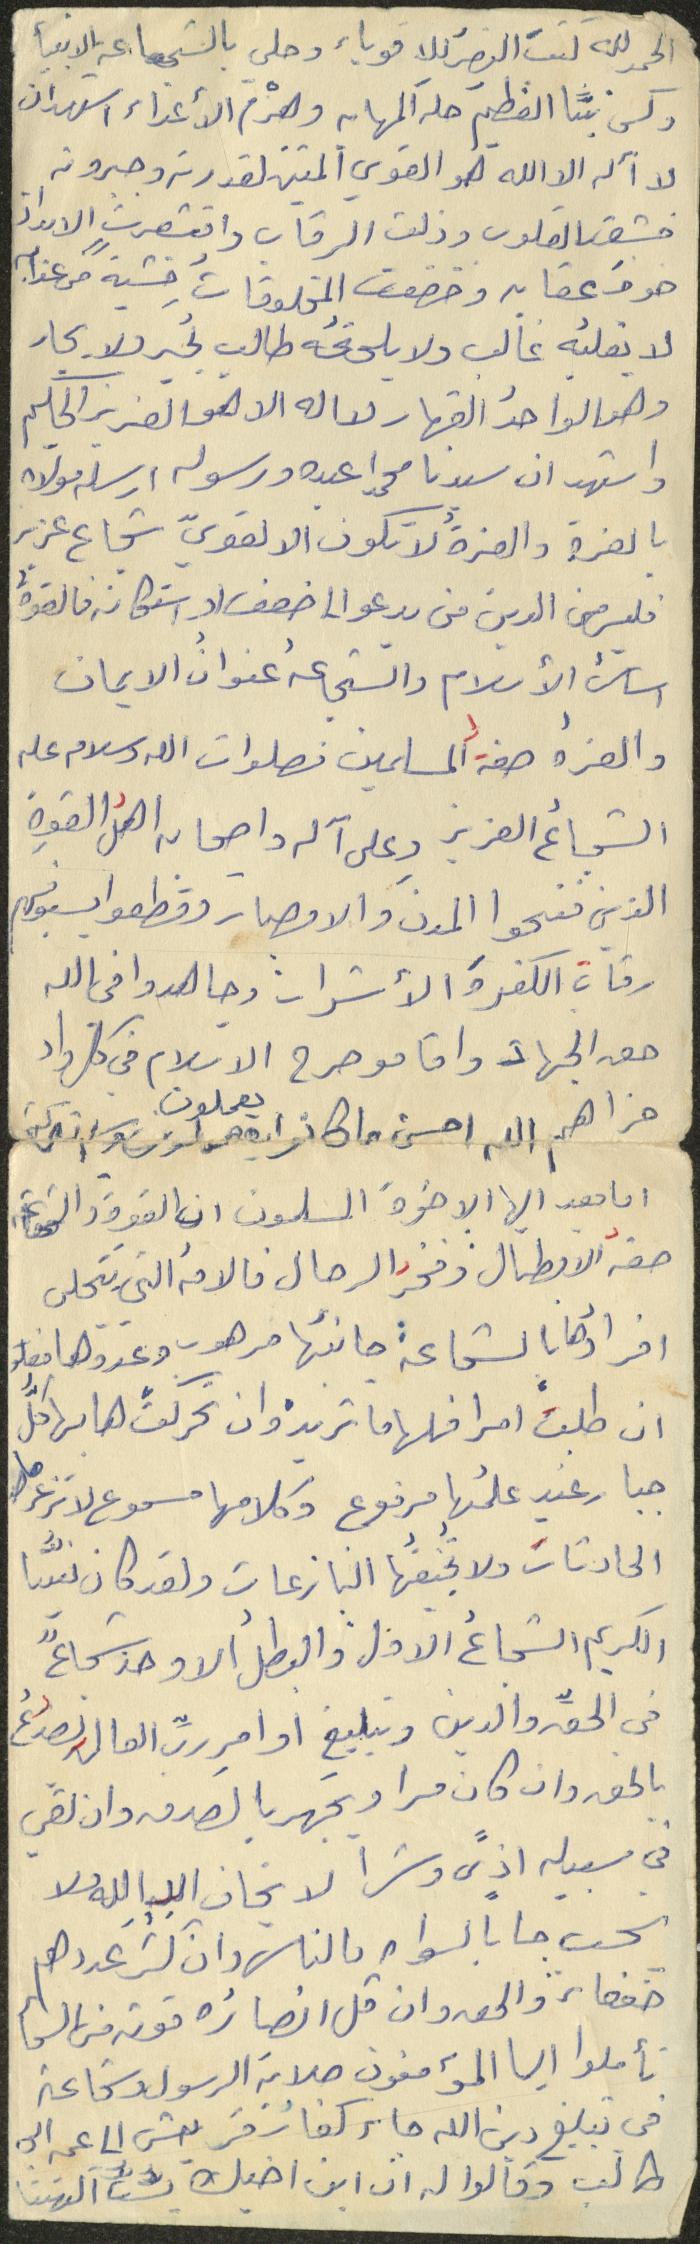 الحمد لله كتب النصر للاقوياء وحلى بالشجاعة الانبياء
وكسى نبيّنا العظيم حلة المهابه وهزم الأعداء اشهد ان
لا آله الا الله هو القوي المتين لقدرته وجبروته
خشعت القلوب وذلت الرقاب واقشعرت الابدان
خوف عقابه وخضعت المخلوقات خشية من عذابه
لا يغلبه غالب ولا يلحقه طالب يجير ولا يجار
وهو الواحد القهار لا اله الا هو العزيز الحكيم
واشهد ان سيدنا محمدا عبده ورسوله ارسله مولاه
بالعزة والعزة لا تكون الا لقويّ شجاع عزيز
فليس من الدين من يدعو الى ضعف او استكانه فالقوة
اساس الأسلام والشجاعة عنوان الايمان
والعزة صفة المسلمين فصلوات الله وسلامه عليه
الشجاع العزيز وعلى آله واصحابه اهل القوة
الذين فتحوا المدن والامصار وقطعوا بسيوفهم
رقاب الكفرة الأشرار وجاهدوا في الله
حق الجهاد واقاموا صرح الاسلام في كل واد
جزاهم الله احسن ما كانوا يعملون
اما بعد ايها الاخوة المسلمون ان القوة والشجاعة
صفة الابطال وفخر الرجال فالامة التي يتحلى
افرادها بالشجاعة جانبها مرهوب وعدوها مغلوب
ان طلبت امرا فلها ما تريد وان تحركت هابها كلّ
جبار عنيد علمها مرفوع وكلامها مسموع لا تزعزعها
الحادثات ولا تخيفها النازعات ولقد كان نبيّنا
الكريم الشجاع الاول والبطل الاوحد شجاعٌ
في الحق والدين وتبليغ اوامر ربّ العالمين يصدع
بالحق وان كان مرا ويجهر بالصدق وان لقي
في سبيله اذىً وشرا لا يخاف الا الله ولا
يحسب حسابا لسواه فالناس وان كثر عددهم
ضعفاء والحق وان قل انصاره قوته من السماء
تأملوا ايها المؤمنون صلابة الرسول وشجاعته
في تبليغ دين الله جاء كفار قريش الى عمه ابي
طالب وقالوا له ان ابن اخيك يشتم آلهتنا